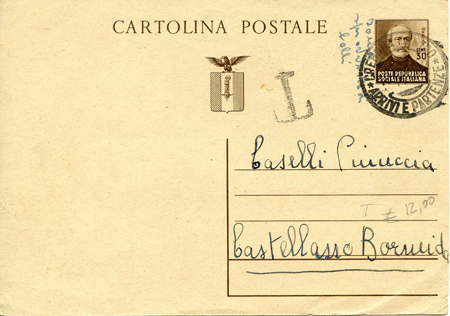 CARTOLINA POSTALE
CENT. 30
POSTE REPUBBLICA
SOCIALE ITALIANA
ARRIVI E PARTENZE
T
Caselli Pinuccia
T € 12,00
Castellasso Bormida